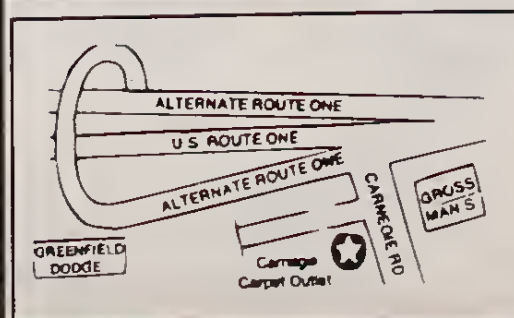 ALTERNATE ROUTE ONE
U.S. ROUTE ONE
ALTERNATE ROUTE ONE
CARNEGIE RD
GROSS
MAN'S
GREENFIELD
DODGE
Carnegie
Carpet Outlet